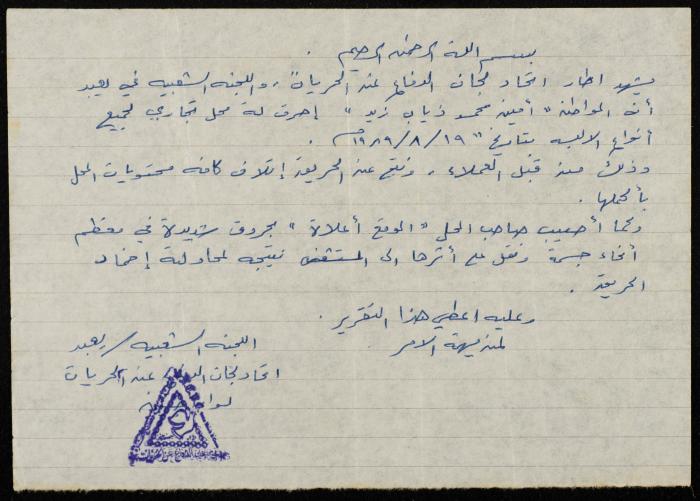 بسم الله الرحمن الرحيم .
يشهد اطار اتحاد لجان الدفاع عن الحريات ، واللجنه الشعبيه في يعبد
أن المواطن " أمين محمد ذياب زيد " إحرق له محل تجاري لجميع
أنواع الالبسه بتاريخ " ١٩ / ٨ / ١٩٨٩م .
وذلك من قبل العملاء ، ونتج عن الحريق إتلاف كافه محتويات المحل
بأكملها .
وكما أصيب صاحب المحل " الموقع أعلاة " بحروق شديدة في معظم
أنحاء جسمة ونقل على أثرها الى المستشفى نتيجه لمحاولة إخماد
الحريق .
وعليه اعطي هذا التقرير .
لمن يهة الامر
اللجنه الشعبيه / يعبد
اتحاد لجان الدفاع عن الحريات